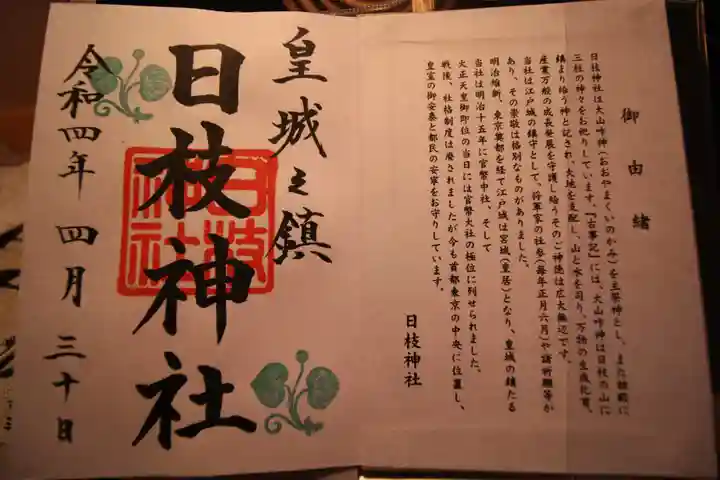 御由緒
日枝神社は大山咋神(おおやまくいのかみ)を主祭神とし、また相殿に
三柱の神々をお祀りしています。『古事記』には、大山咋神は日枝の山に
鎮まり給う神と記され、大地を支配し、山と水を司り、万物の生成化育、
産業万般の成長発展を守護し給うそのご神徳は広大無辺です。
当社は江戸城の鎮守として、将軍家の社参(毎年正月六月)や諸祈願等が
あり、その崇敬は格別なものがありました。
明治維新、東京奠都を経て江戸城は宮城(皇居)となり、皇城の鎮たる
当社は明治十五年に官幣中社、そして
大正天皇御即位の当日には官幣大社の極位に列せられました。
戦後、社格制度は廃されましたが今も首都東京の中央に位置し、
皇室の御安泰と都民の安寧をお守りしています。
日枝神社
皇城之鎮
日枝神社
日枝神社
令和四年四月三十日